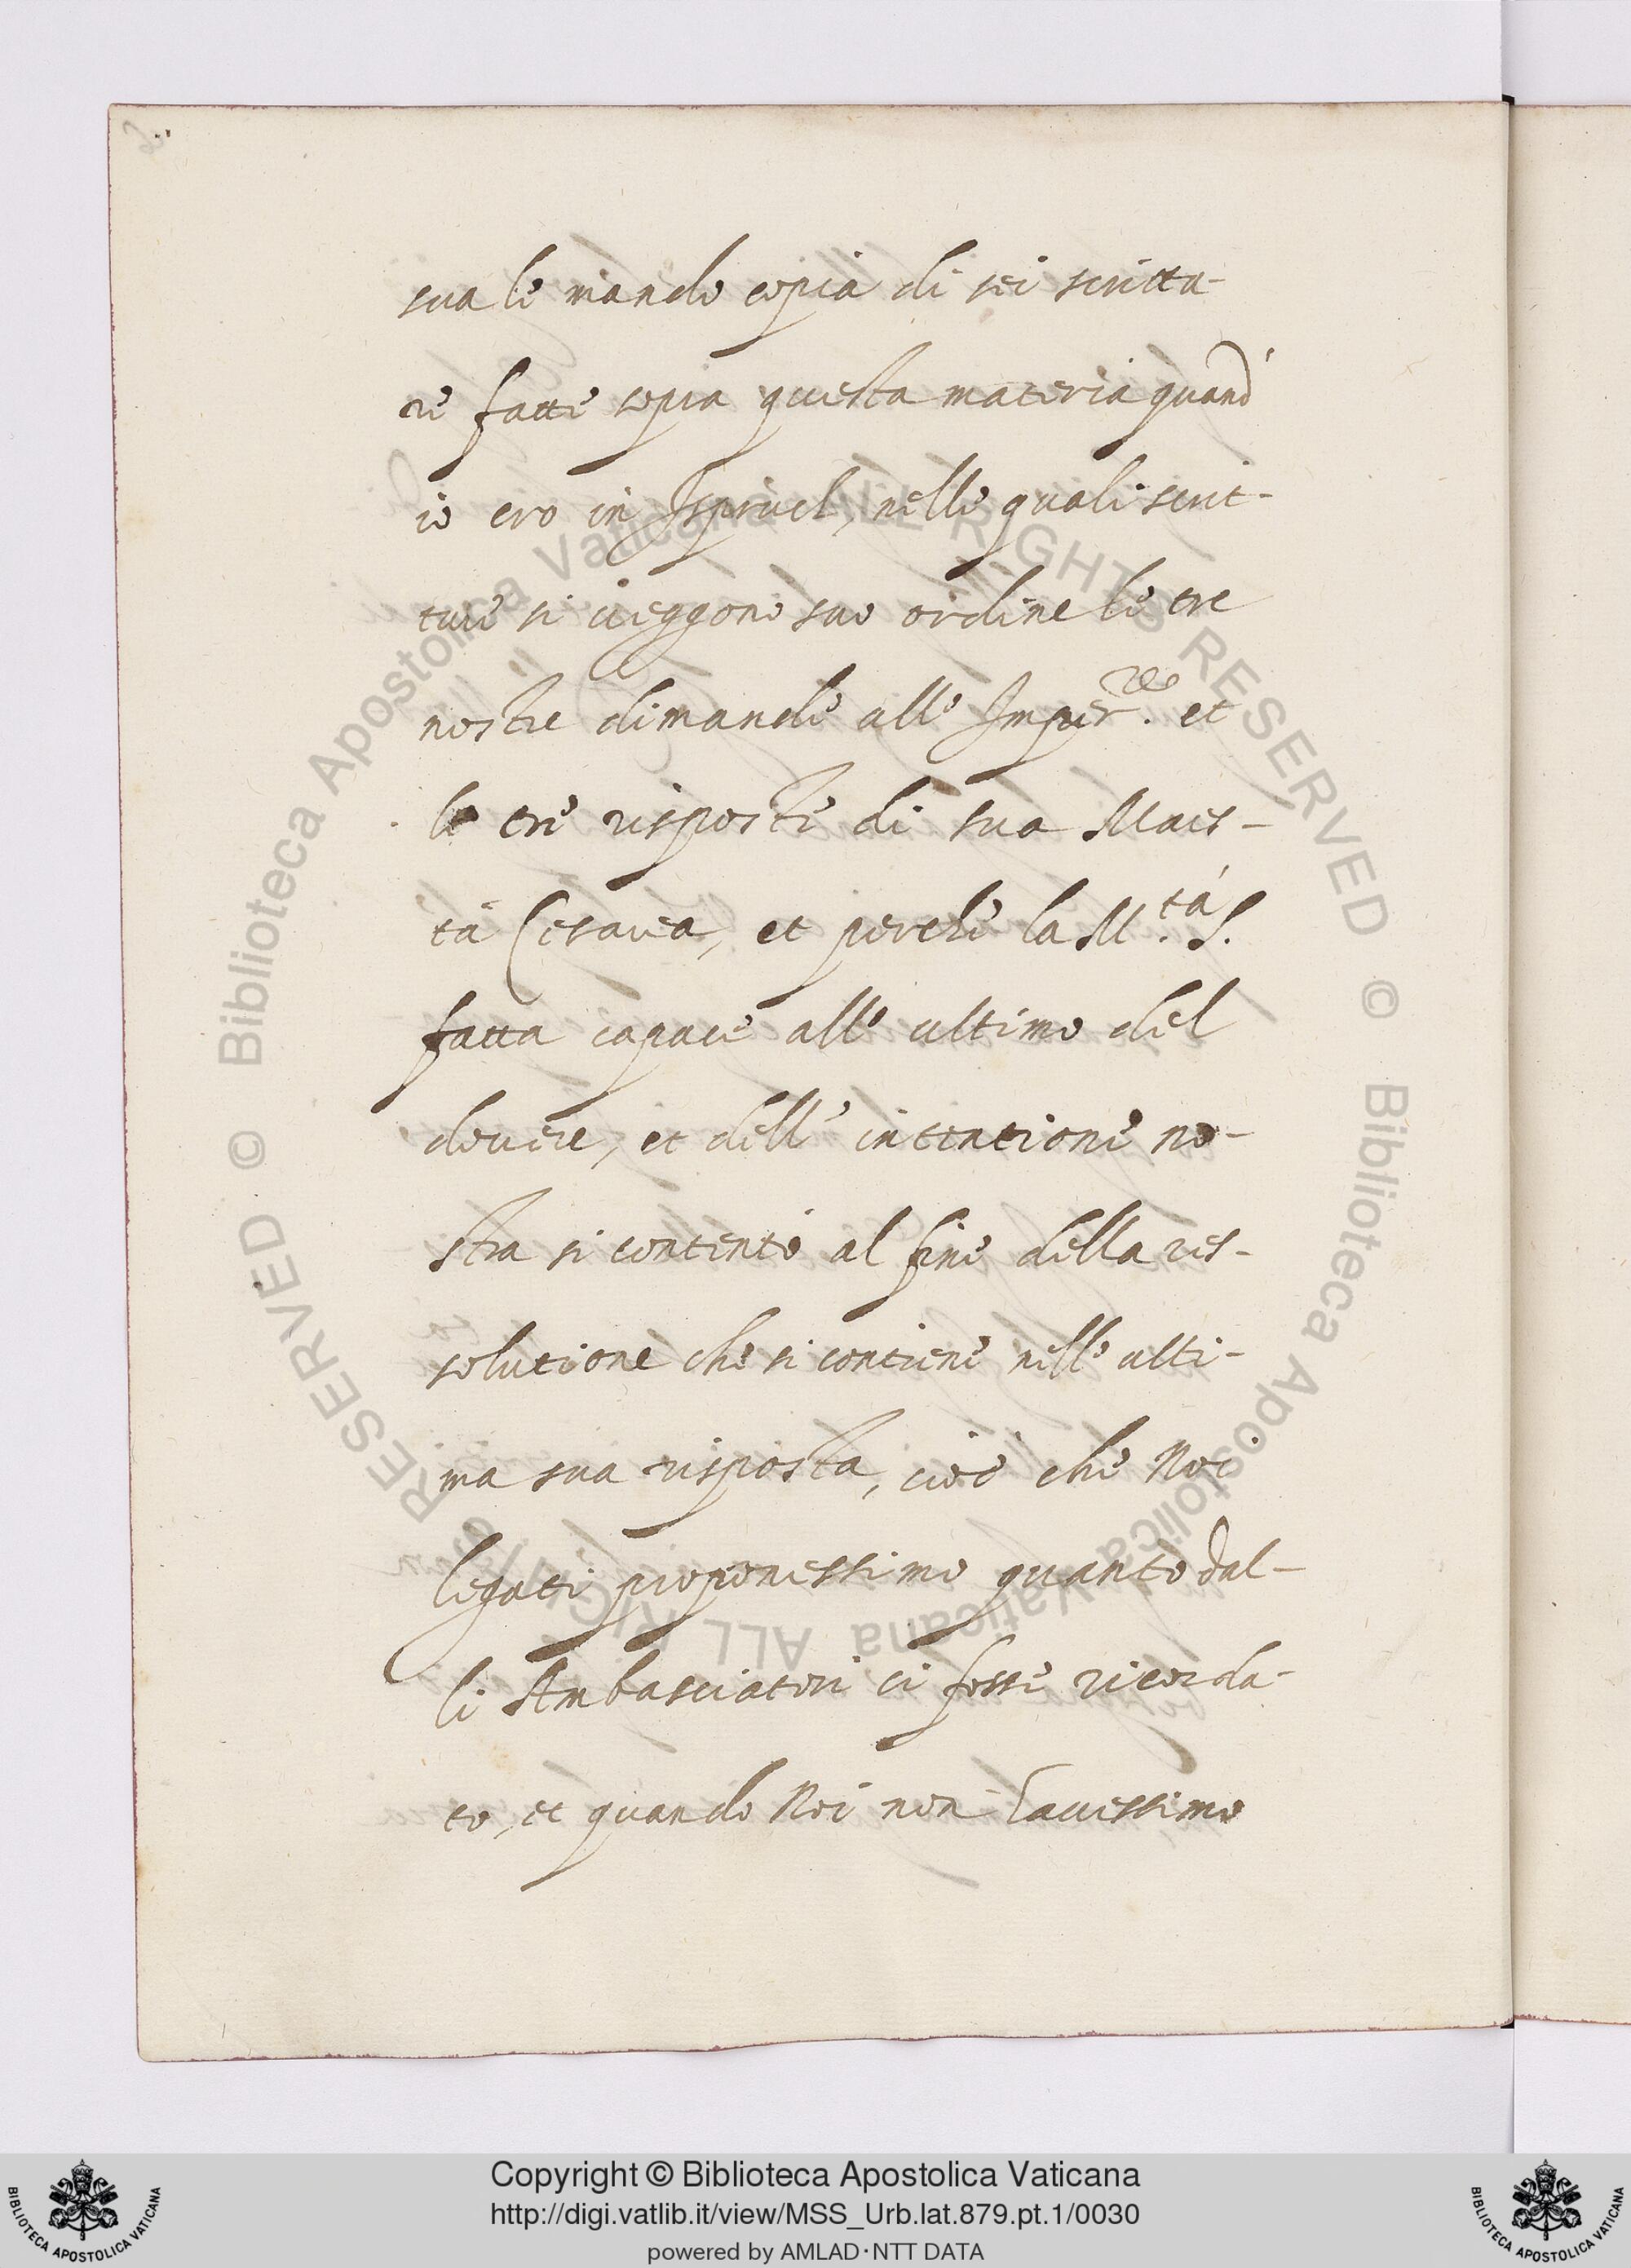 sua le mando copia di sei scrittu-
re fatte sopra questa materia quand'
io ero in Ispruch, nelle quali scrit-
ture si veggono suo ordine le tre
nostre dimande all' Imper.re et
le tre risposte di sua Maes-
tà Cesarea, et perche la M.tà S.
fatta capace all' ultimo del
dovere, et dell' intentione no-
stra si contentò al fine della res-
solutione che si contiene nell' ulti-
ma sua risposta, cioè che Noi
legati proponessimo quanto dal-
li Ambasciatori ci fosse ricorda-
to, et quando Noi non havessimo
© Biblioteca Apostolica Vaticana ALL RIGHTS RESERVED
© Biblioteca Apostolica Vaticana ALL RIGHTS RESERVED
Copyright © Biblioteca Apostolica Vaticana
http://digi.vatlib.it/view/MSS_Urb.lat.879.pt.1/0030
powered by AMLAD·NTT DATA
BIBLIOTECA APOSTOLICA VATICANA
BIBLIOTECA APOSTOLICA VATICANA